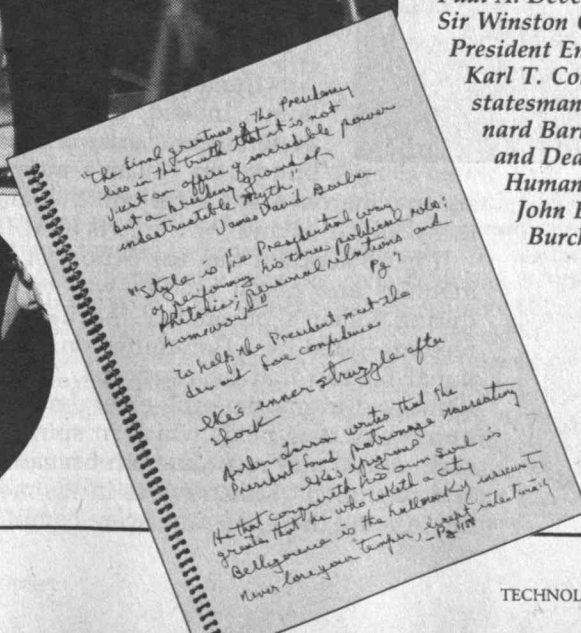 Paul A. Deve
Sir Winston
President Em
Karl T. Co
statesman
nard Bar
and Dea
Human
John
Burch
"The final greatness of the Presidency
lies in the truth that it is not
just an office of incredible power
but a breeding ground of
indestructible myth."
James David
"Style is his Presidential way
of performing his three political roles:
rhetoric, personal relations and
homework" Pg 7
To help the President meet the
dem and confidence
Ike's inner struggle after
shock
Arthur Larson writes that the
President found patronage nauseating
Ike's epigrams
He that conquereth his own soul is
greater than he who taketh a city
Belligerence is the hallmark of insecurity
Never lose your temper, except intentionally
TECHNOL